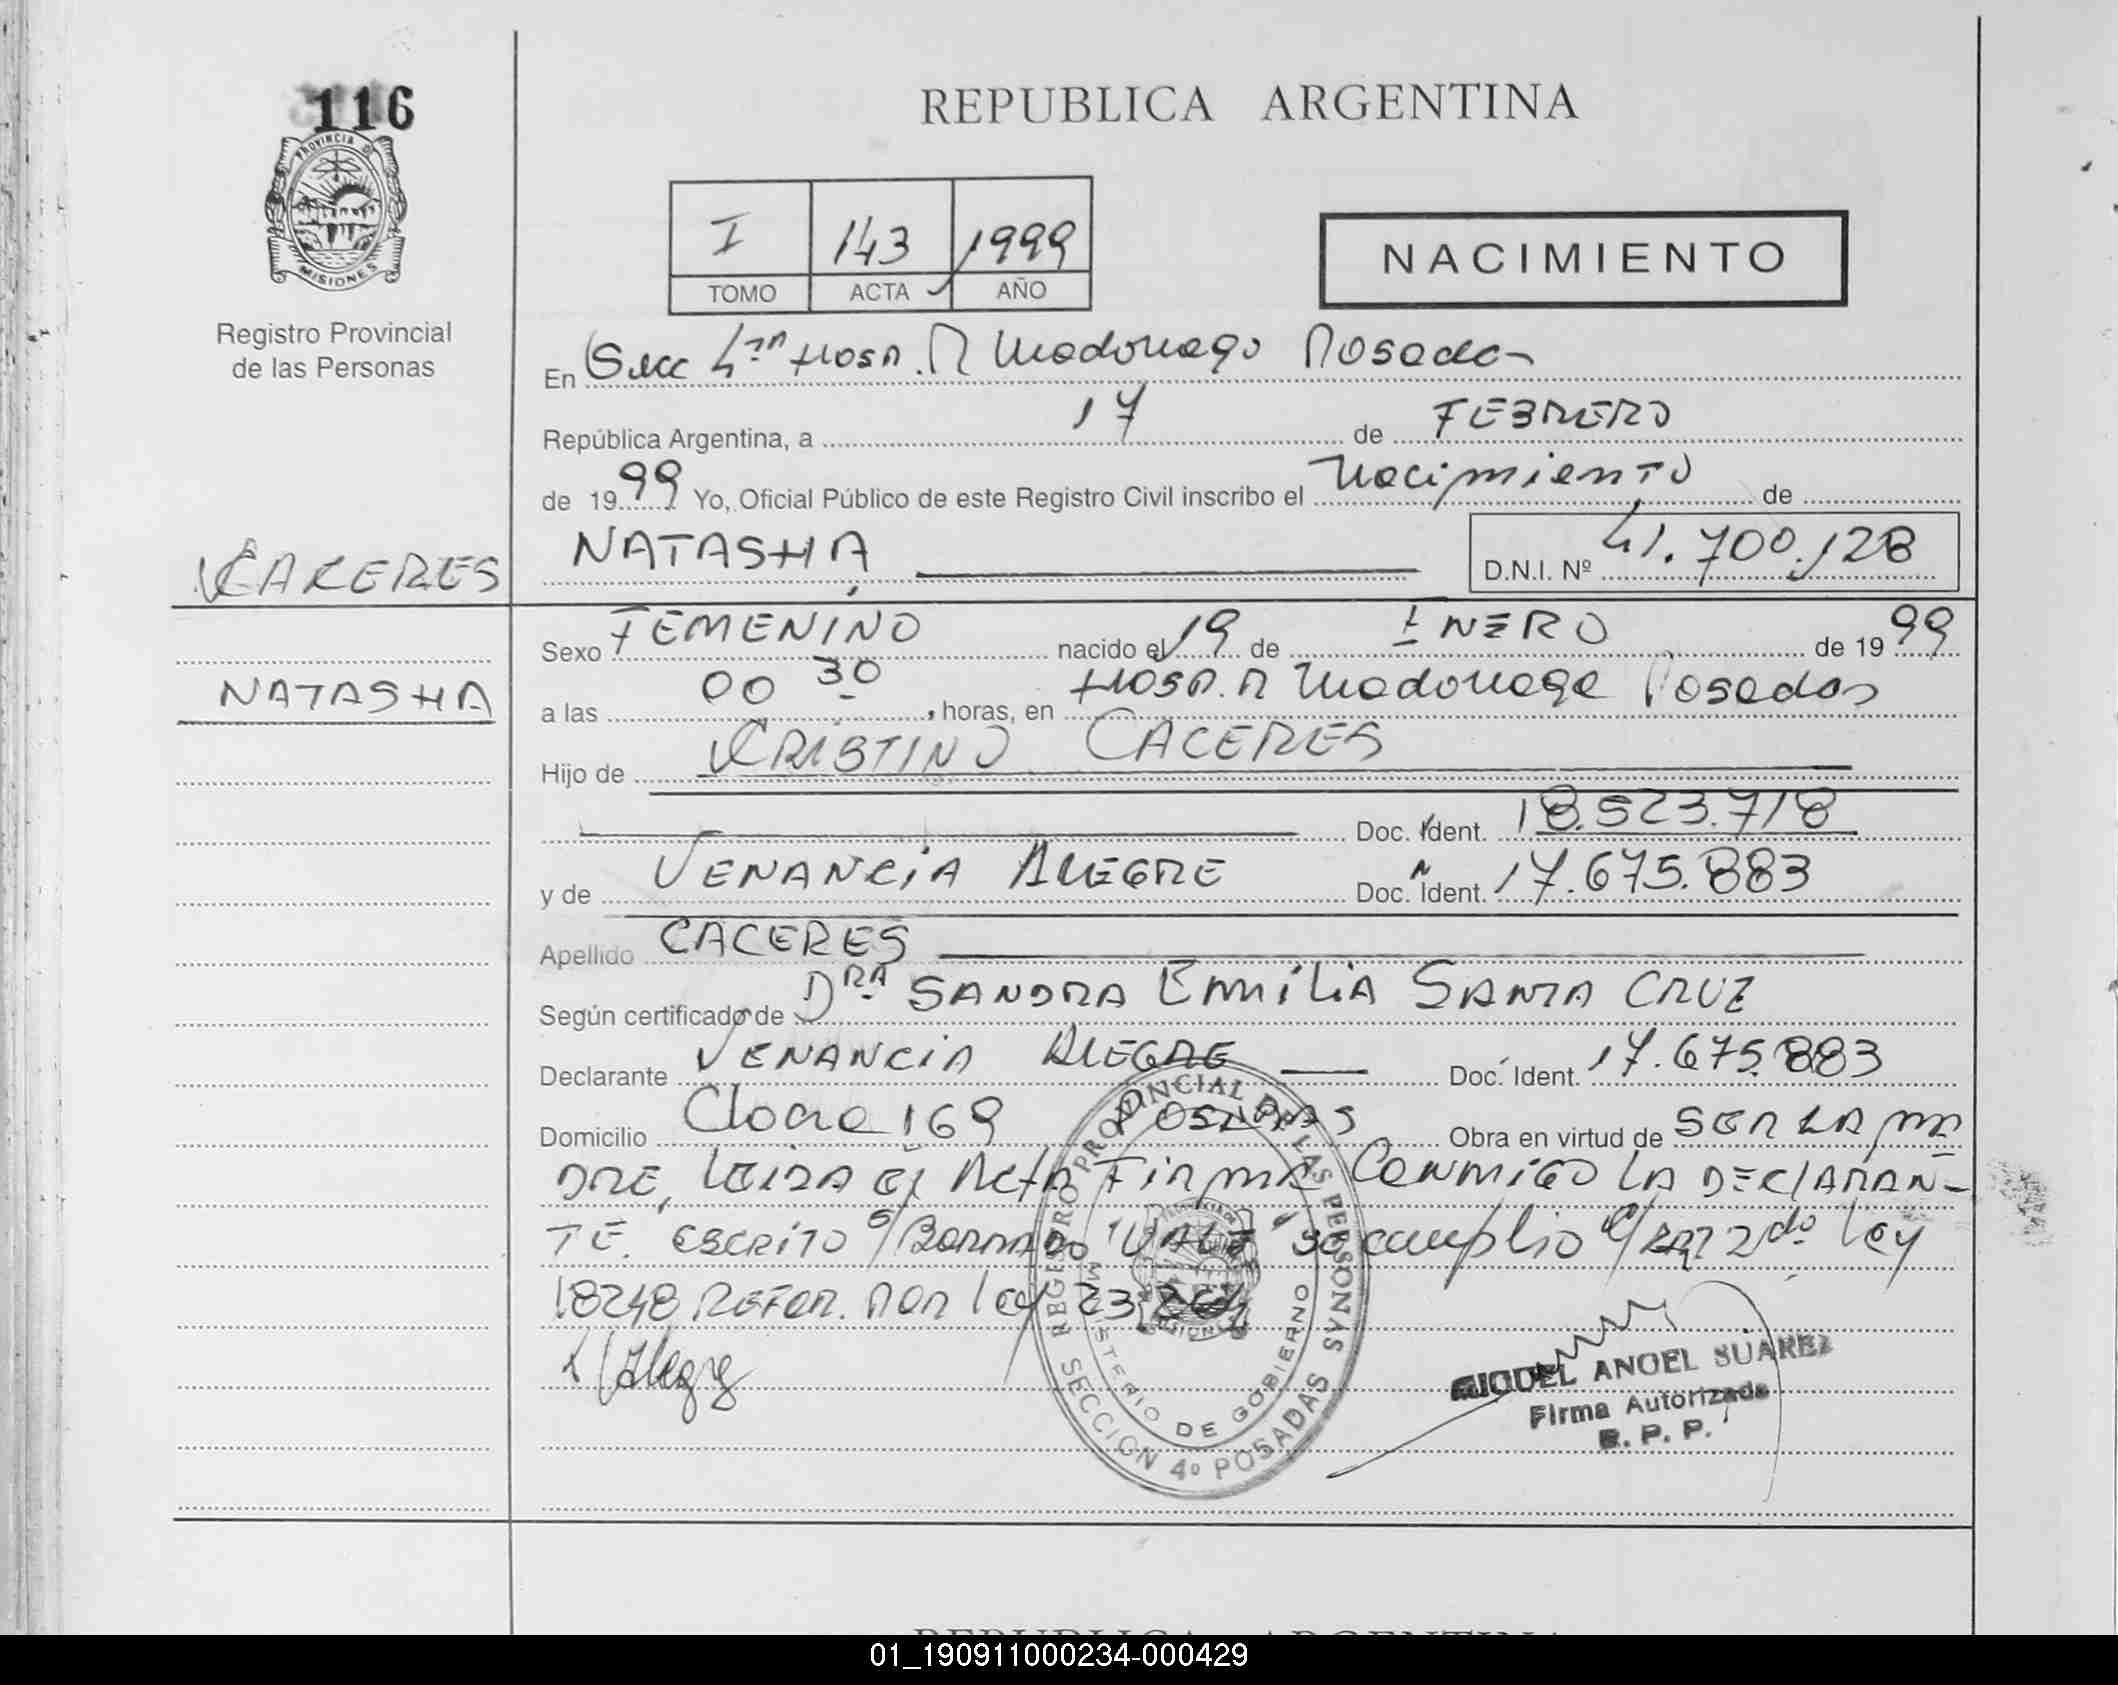 116
PROVINCIA DE
MISIONES
Registro Provincial
de las Personas
REPUBLICA ARGENTINA
I 143 1999
TOMO ACTA AÑO
NACIMIENTO
En Secc 4ta Hosp. R Madariaga Posadas
República Argentina, a 17 de FEBRERO
de 1999 Yo, Oficial Público de este Registro Civil inscribo el Nacimiento de
CACERES NATASHA D.N.I. Nº 41.700.128
Sexo FEMENINO nacido el 19 de ENERO de 1999
NATASHA
a las 00 30, horas, en Hosp. R Madariaga Posadas
Hijo de CRISTINO CACERES
Doc. Ident. 18.523.718
y de VENANCIA ALEGRE Doc. Ident. 17.675.883
Apellido CACERES
Según certificado de DRA SANDRA EMILIA SANTA CRUZ
Declarante VENANCIA ALEGRE Doc. Ident. 17.675.883
Domicilio 169 POSADAS Obra en virtud de SER LA MA
DRE, LEIDA EL ACTA FIRMA CONMIGO LA DECLARAN-
TE. ESCRITO S/BORRADO "VALE" se cumplio c/ART 2do ley
18248 REFOR. POR ley
Alegre
REGISTRO PROVINCIAL DE LAS PERSONAS
MINISTERIO DE GOBIERNO
SECCION 4º POSADAS
MIGUEL ANGEL SUAREZ
Firma Autorizada
R. P. P.
REPUBLICA ARGENTINA
01_190911000234-000429